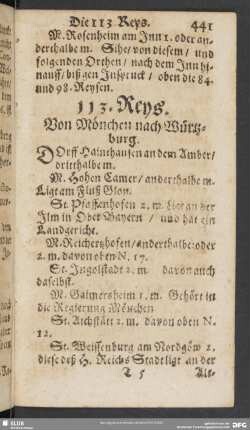 Die 113 Reys.
441
M. Rosenheim am Jnn 1. oder an-
derthalbe m. Sihe/ von diesem / und
folgenden Orthen / nach dem Jnn hi-
nauff/ biß gen Jnspruck / oben die 84.
und 98. Reysen.
113. Reys.
Von Mönchen nach Würtz-
burg.
DOrff Haimhausen an dem Amber/
dritthalbe m.
M. Hohen Camer/ anderthalbe m.
Ligt am Fluß Glon.
St. Pfaffenhofen 2. m. Ligt an der
Jlm in Ober Bayern / und hat ein
Landgericht.
M. Reichertshofen/ anderthalbe oder
2. m. davon oben N. 17.
St. Jngolstatt 2. m. davon auch
daselbst.
M. Gaimersheim 1. m. Gehört in
die Regierung München
St. Aichstätt 2. m. davon oben N.
12.
St. Weissenburg am Nordgöw 2.
diese deß H. Reichs Stadt ligt an der
T 5
Alt-
SLUB
DFG